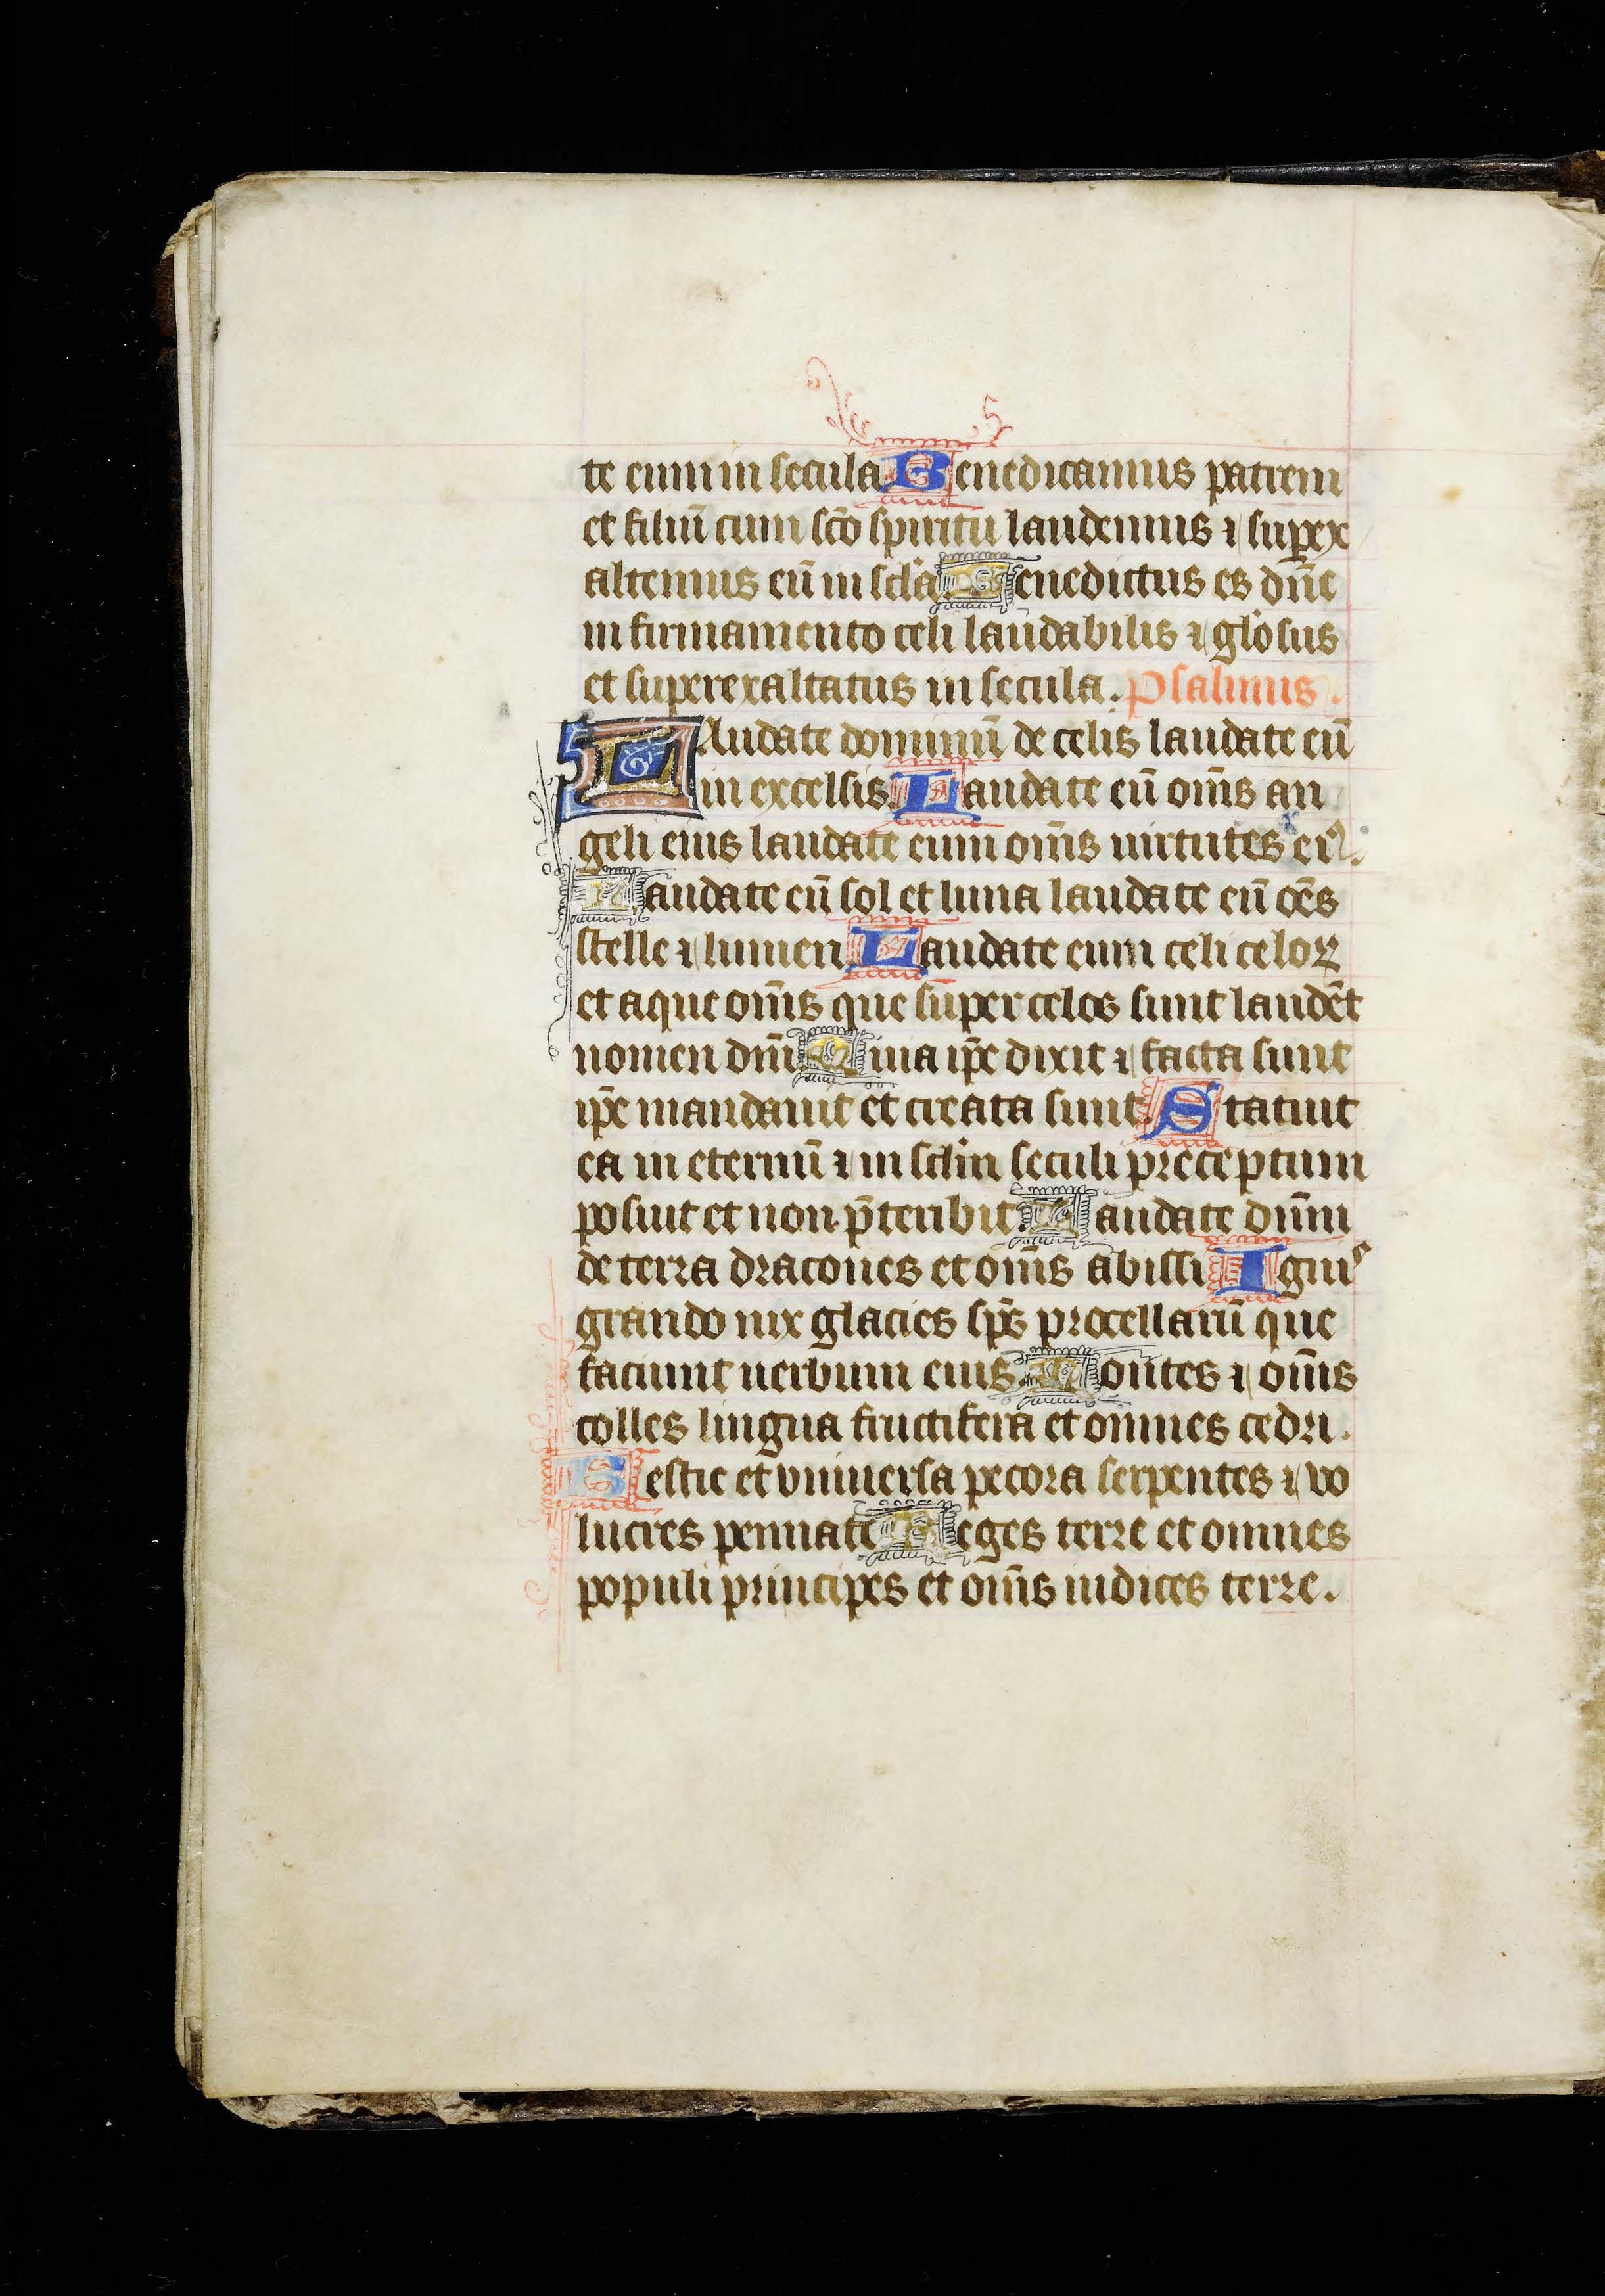 te eum in secula Benedicamus patrem
et filiū cum sc̄o spiritu laudemus ⁊ suꝑex
altemus eū in sc̄la Benedictus es dn̄e
in firmamento celi laudabilis ⁊ glosus
et superexaltatus in secula. Psalmus.
LAudate dominū de celis laudate eū
in excelsis. Laudate eū om̄s an
geli eius laudate eum om̄s uirtutes eiꝰ.
Laudate eū sol et luna laudate eū oēs
stelle ⁊ lumen. Laudate eum celi celoꝝ
et aque om̄s que super celos sunt laudēt
nomen dn̄i Quia ip̄e dixit ⁊ facta sunt
ip̄e mandauit et creata sunt. Statuit
ea in eternū ⁊ in sclm̄ seculi preceptum
posuit et non p̄teribit. Laudate dn̄m
de terra dracones et om̄s abissi Igniˢ
grando nix glacies sp̄s procellarū que
faciunt uerbum eius. Montes ⁊ om̄s
colles lingua fructifera et omnes cedri.
Bestie et vniuersa pecora serpentes ⁊ vo
lucres pennate Reges terre et omnes
populi principes et om̄s iudices terre.